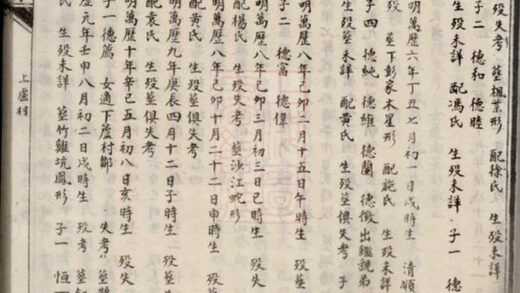 生殁失考 葬楓業形 配徐氏 生殁未詳
子二 德和 德睦
生殁未詳 配馮氏 生殁未詳 子一 德
明萬歷六年丁丑七月初一日戌時生 清順
葬下彭家木星形 配施氏 生殁未
子四 德純 德維 德蘭 德儆出繼說弟
生殁未詳 配黃氏 生殁葬俱失考 子
明萬歷八年己卯二月十五日午時生 殁葬
子二 德富 德偉
明萬歷八年己卯三月初三日巳時生 殁失
配楊氏 生殁失考 葬沙江蛇形
明萬歷八年己卯十月二十二日申時生 殁
配黃氏 生殁葬俱失考
明萬歷九年庚辰四月十二日子時生 殁葬
配袁氏 生殁葬俱失考
明萬歷十年辛巳五月初八日亥時生 殁失
子一 德萬 女適下盧村鄒
失考 葬
歷元年壬申八月初二日戌時生 殁考 葬
生殁未詳 葬竹雞坑鳳形 子一 恆
上盧村